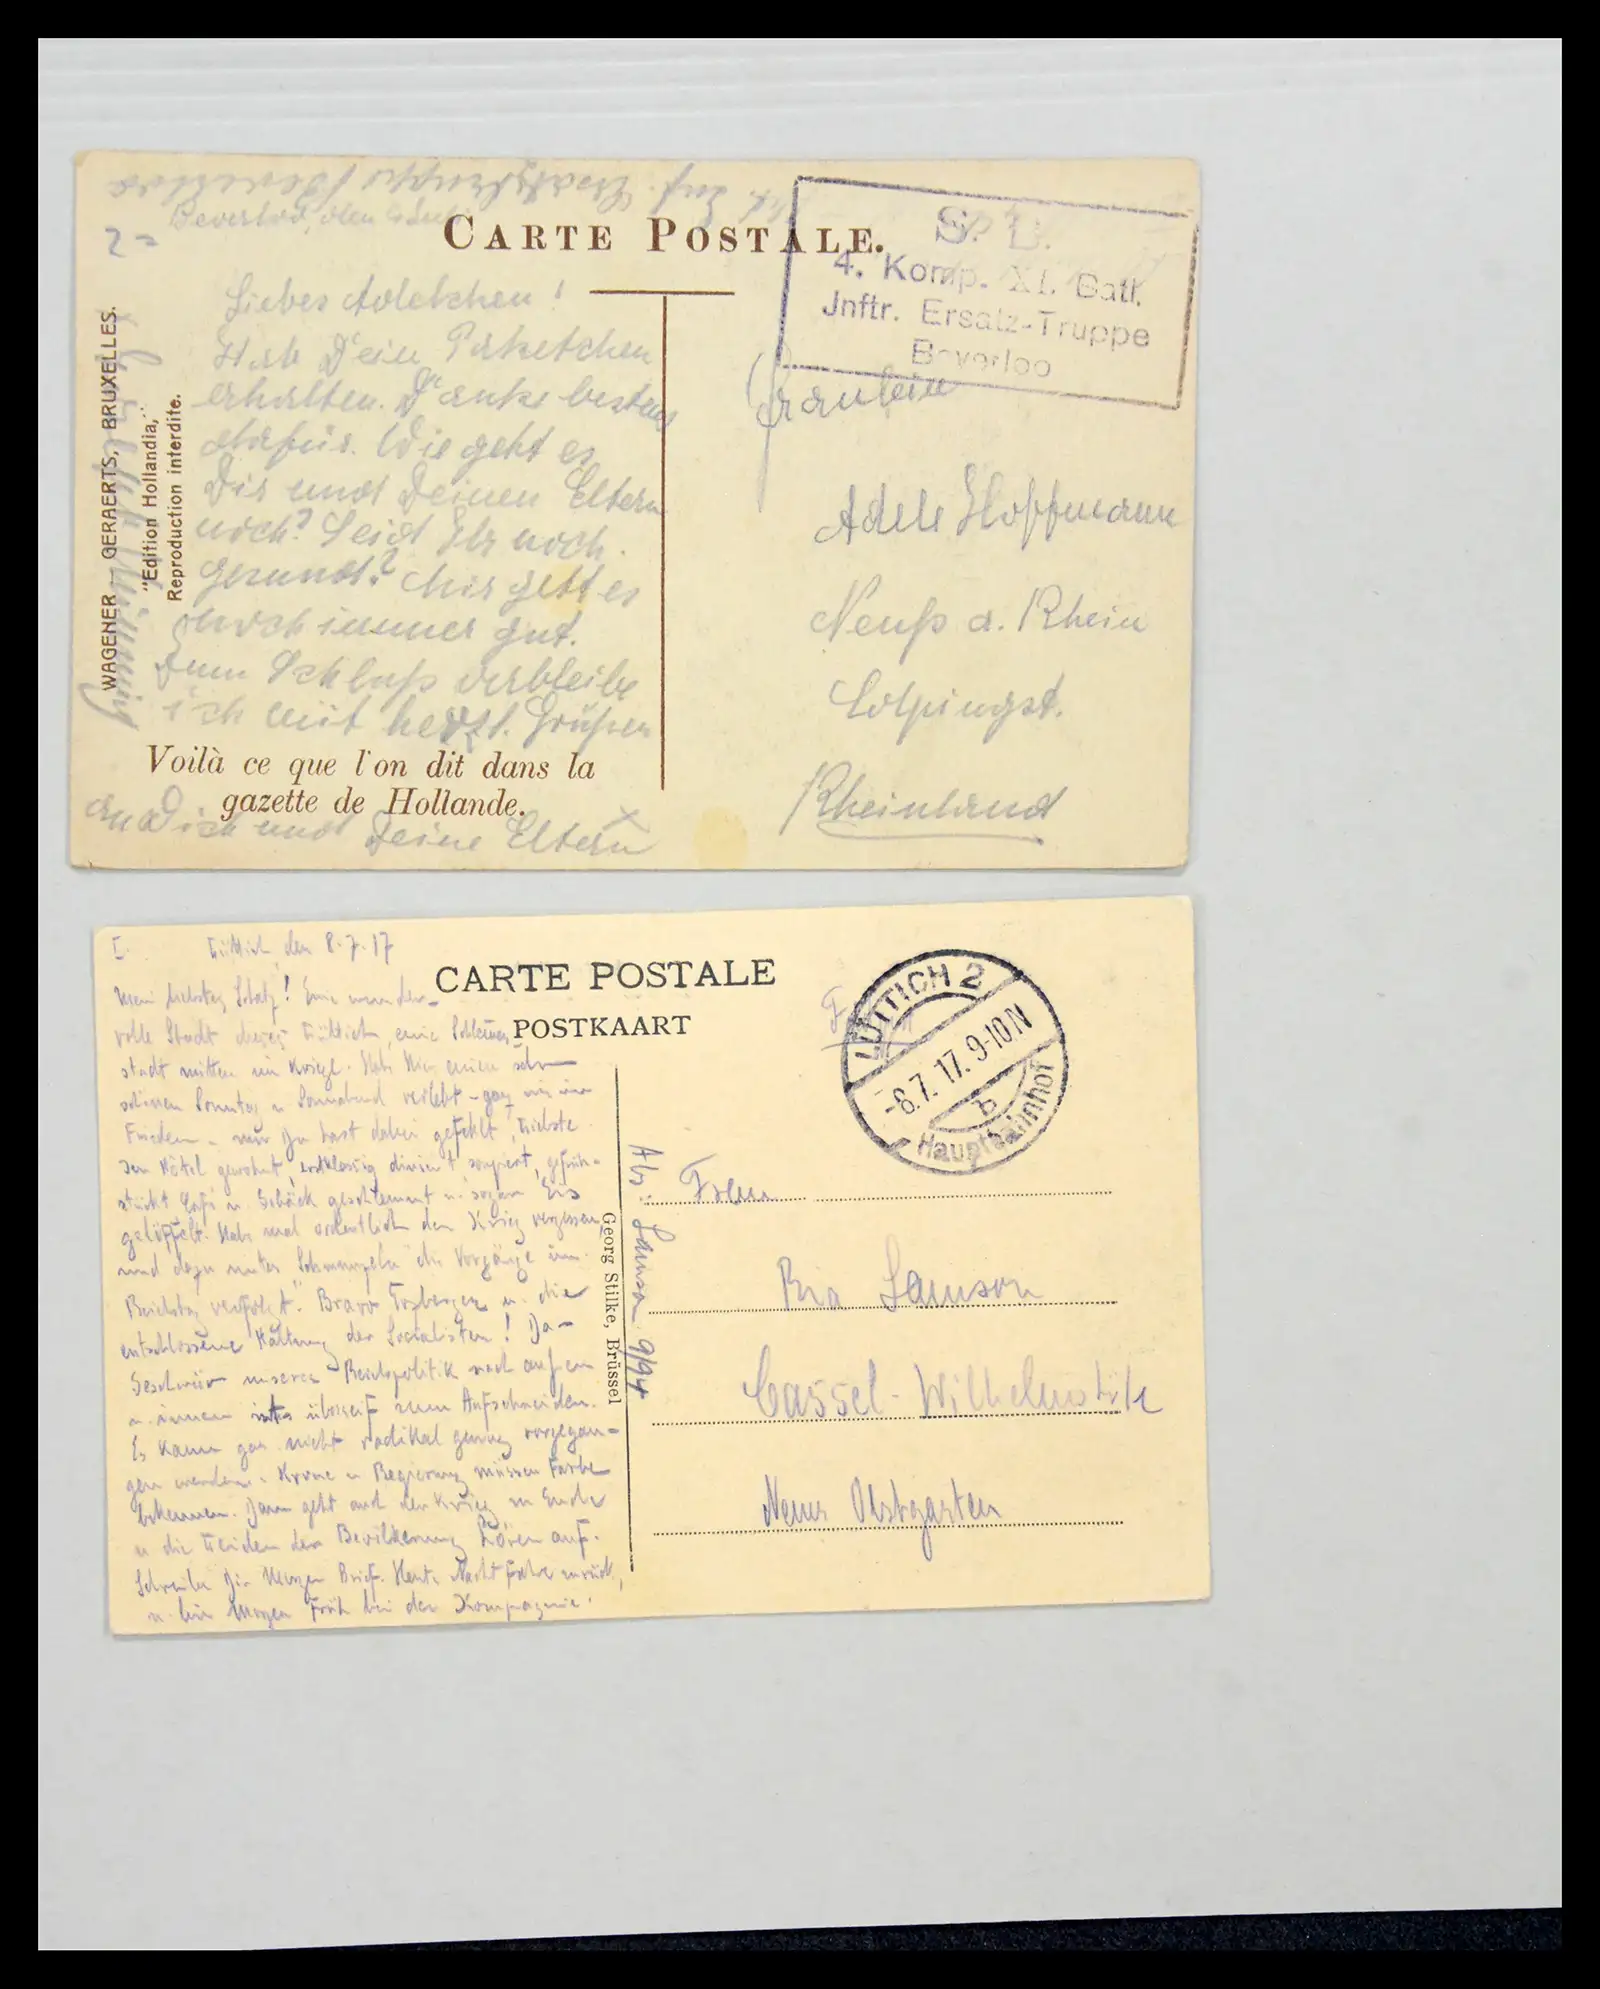 Beverloo, den
CARTE POSTALE.
S. B.
4. Komp. XI. Batl.
Jnftr. Ersatz-Truppe
Beverloo
WAGENER - GERAERTS, BRUXELLES.
"Edition Hollandia,"
Reproduction interdite.
Liebes Adelchen!
Hab Dein Paketchen
erhalten. Danke bestens
dafür. Wie geht es
Dir und Deinen Eltern
noch? Seid Ihr noch
gesund? Mir geht es
noch immer gut.
Zum Schluß verbleibe
ich mit herzl. Grüßen
Voilà ce que l'on dit dans la
gazette de Hollande.
an Dich und Deine Eltern
Fräulein
Adele Hoffmann
Neuß a. Rhein
Colpingst.
Rheinland
I. Lüttich den 8.7.17
CARTE POSTALE
POSTKAART
LÜTTICH 2
-8.7.17.9-10N
b
Hauptbahnhof
Mein liebster Schatz! Eine wunder-
volle Stadt dieses Lüttich, eine
stadt mitten im Kriege. Hab hier einen
schönen Sonntag u. Sonnabend verlebt - ganz wie im
Frieden - nur Du hast dabei gefehlt, Liebste.
Im Hôtel gewohnt, erstklassig diniert soupiert, gefrüh-
stückt, Café u. Gebäck geschlemmt u. sogar Eis
gelöffelt. Habe mal ordentlich den Krieg vergessen
und dazu unter Schmunzeln die Vorgänge im
Reichstag verfolgt. Bravo Erzberger u. die
entschlossene Haltung der Socialisten! Das
Geschwür unserer Reichspolitik nach außen
u. innen ist überreif zum Aufschneiden.
Es kann gar nicht radikal genug vorgegan-
gen werden. Krone u. Regierung müssen Farbe
bekennen. Dann geht auch der Krieg zu Ende
u. die Leiden der Bevölkerung hören auf.
Schreibe Dir Morgen Brief. Heute Nacht fahre zurück,
u. bin Morgen Früh bei der Kompagnie.
Georg Stilke, Brüssel
Abs. Samson 9/94
Frau
Ria Samson
Cassel-Wilhelmshöhe
Neues Obstgarten